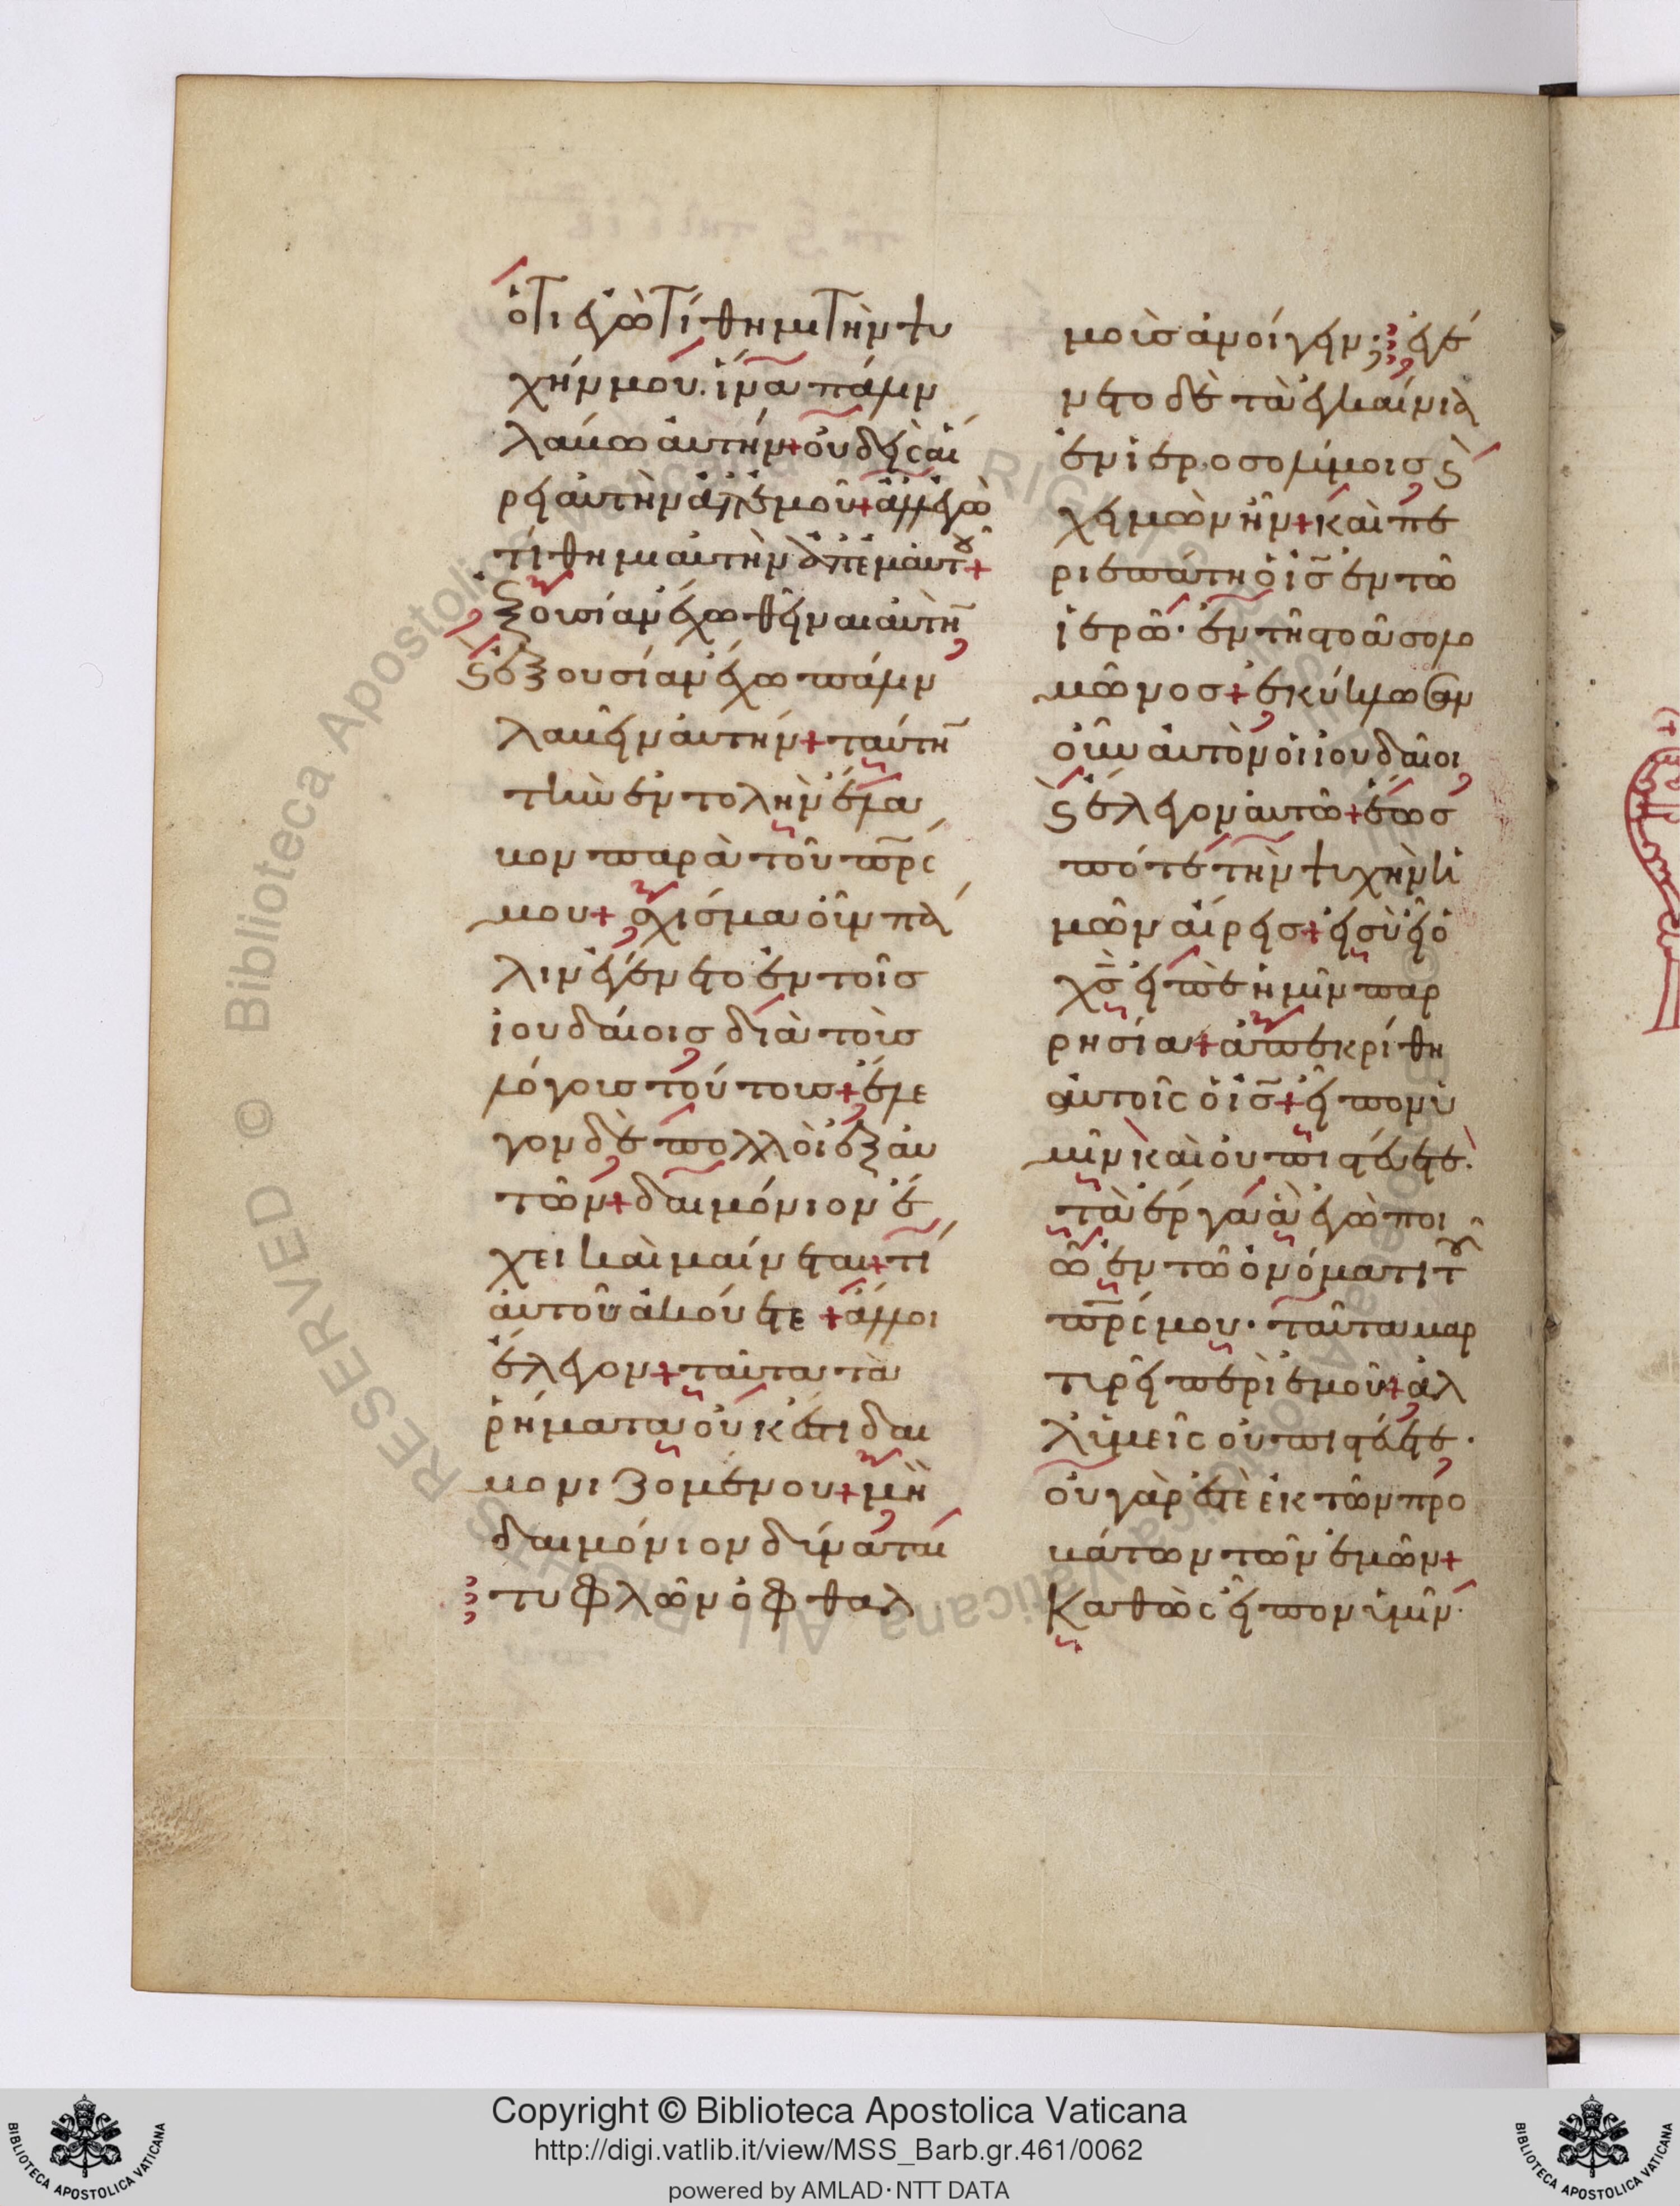 ὅτι ἐγὼ τίθημι τὴν ψυ
χήν μου. ἵνα πάλιν
λάβω αὐτήν + οὐδεὶς αἴ
ρει αὐτὴν ἀπ' ἐμοῦ + ἀλλ' ἐγὼ
τίθημι αὐτὴν ἀπ' ἐμαυτοῦ +
ἐξουσίαν ἔχω θεῖναι αὐτὴν
ϛ ἐξουσίαν ἔχω πάλιν
λαβεῖν αὐτήν + ταύτην
τὴν ἐντολὴν ἔλα
βον παρὰ τοῦ πρς
μου + σχίσμα οὖν πά
λιν ἐγένετο ἐν τοῖς
ἰουδαίοις διὰ τοὺς
λόγους τούτους + ἔλε
γον δὲ πολλοὶ ἐξ αὐ
τῶν + δαιμόνιον ἔ
χει καὶ μαίνεται + τί
αὐτοῦ ἀκούετε + ἄλλοι
ἔλεγον + ταῦτα τὰ
ῥήματα οὐκ ἔστι δαι
μονιζομένου + μὴ
δαιμόνιον δύναται
τυφλῶν ὀφθαλ
μοὺς ἀνοίγειν; ἐγέ
νετο δὲ τὰ ἐγκαίνια
ἐν ἱεροσολύμοις ϛ
χειμὼν ἦν + καὶ πε
ριεπάτη ὁ ις ἐν τῶ
ἱερῶ· ἐν τῆ στοᾶ σολο
μῶνος + ἐκύκλωσαν
οὖν αὐτὸν οἱ ἰουδαῖοι
ϛ ἔλεγον αὐτῶ + ἕως
πότε τὴν ψυχὴν ἡ
μῶν αἴρεις + εἰ σὺ εἶ ὁ
χς εἰπὲ ἡμῖν παρ
ρησία + ἀπεκρίθη
αὐτοῖς ὁ ις + εἶπον ὑ
μῖν καὶ οὐ πιστεύετε·
τὰ ἔργα ἃ ἐγὼ ποι
ῶ ἐν τῶ ὀνόματι τοῦ
πρς μου· ταῦτα μαρ
τυρεῖ περὶ ἐμοῦ + ἀλ
λ' ὑμεῖς οὐ πιστεύετε·
οὐ γάρ ἐστὲ ἐκ τῶν προ
βάτων τῶν ἐμῶν +
Καθὼς εἶπον ὑμῖν·
© Biblioteca Apostolica Vaticana ALL RIGHTS RESERVED
Copyright © Biblioteca Apostolica Vaticana
http://digi.vatlib.it/view/MSS_Barb.gr.461/0062
powered by AMLAD·NTT DATA
BIBLIOTECA APOSTOLICA VATICANA
BIBLIOTECA APOSTOLICA VATICANA